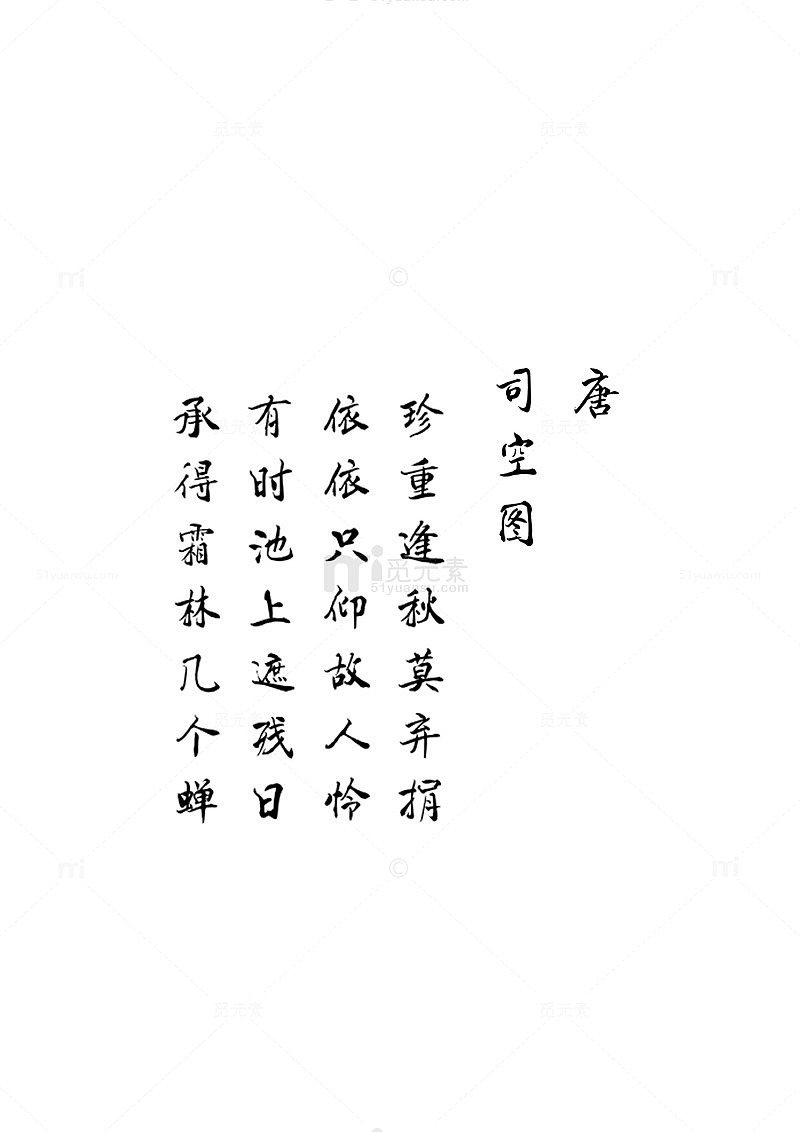 唐
司空图
珍重逢秋莫弃捐
依依只仰故人怜
有时池上遮残日
承得霜林几个蝉
觅元素
51yuansu.com